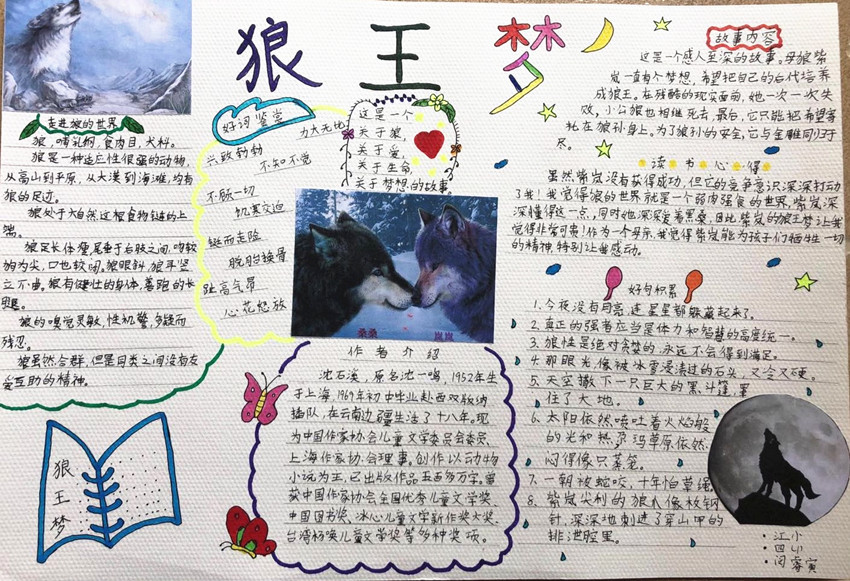 狼王梦
走进狼的世界
狼,哺乳纲,食肉目,犬科。
狼是一种适应性很强的动物,
从高山到平原,从大漠到海滩,均有
狼的足迹。
狼处于大自然这根食物链的上
端。
狼足长体瘦,尾垂于后肢之间,吻较
狗为尖,口也较阔,狼眼斜,狼耳竖
立不曲。狼有健壮的身体,善跑的长
腿。
狼的嗅觉灵敏,性机警,多疑而
残忍。
狼虽然合群,但是同类之间没有友
爱互助的精神。
狼
王
梦
好词鉴赏
力大无比
兴致勃勃
不知不觉
不顾一切
饥寒交迫
铤而走险
脱胎换骨
趾高气昂
心花怒放
这是一个
关于狼,
关于爱,
关于生命,
关于梦想的故事。
桑桑
岚岚
作者介绍
沈石溪,原名沈一鸣,1952年生
于上海,1969年初中毕业赴西双版纳
插队,在云南边疆生活了十八年。现
为中国作家协会儿童文学委员会委员,
上海作家协会理事。创作以动物
小说为主,已出版作品五百多万字。曾
获中国作家协会全国优秀儿童文学奖、
中国图书奖、冰心儿童文学新作奖大奖、
台湾杨唤儿童文学奖等多种奖项。
故事内容
这是一个感人至深的故事。母狼紫
岚一直有个梦想,希望把自己的后代培养
成狼王。在残酷的现实面前,她一次一次失
败,小公狼也相继死去,最后,它只能把希望寄
托在狼孙身上。为了狼孙的安全,它与金雕同归于
尽。
读书心得
虽然紫岚没有获得成功,但它的竞争意识深深打动
了我!我觉得狼的世界就是一个弱肉强食的世界,紫岚深
深懂得这一点,同时她深深爱着黑桑,因此紫岚的狼王梦让我
觉得非常可贵!作为一个母亲,我觉得紫岚能为孩子们牺牲一切
的精神,特别让我感动。
好句积累
1. 今夜没有月亮,连星星都躲藏起来了。
2. 真正的强者应当是体力和智慧的高度统一。
3. 狼性是绝对贪婪的,永远不会得到满足。
4. 那眼光,像被冰雪浸渍过的石头,又冷又硬。
5. 天空撒下一只巨大的黑斗篷,罩
住了大地。
6. 太阳依然喷吐着火焰般
的光和热,尕玛草原依然
闷得像只蒸笼。
7. 一朝被蛇咬,十年怕草绳
8. 紫岚尖利的狼爪像枚钢
针,深深地刺进了穿山甲的
排泄腔里。
·江小
·四小